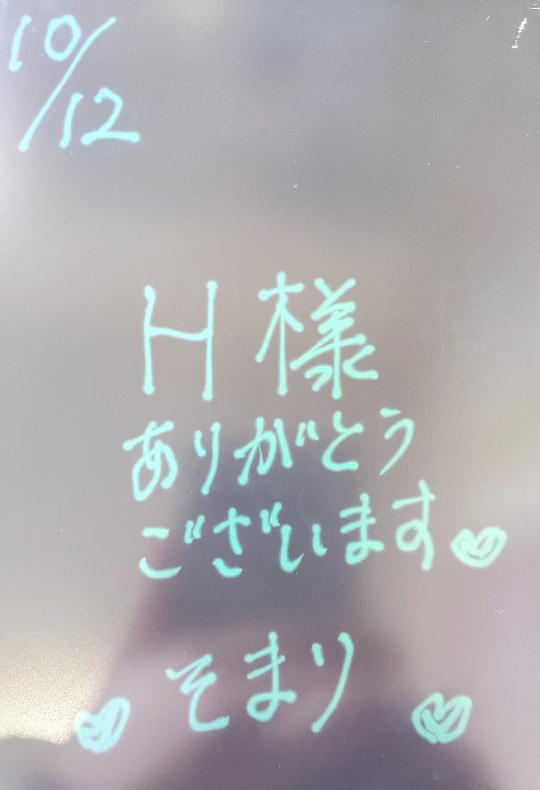 10/12
H様
ありがとう
ございます♡
♡そまり♡